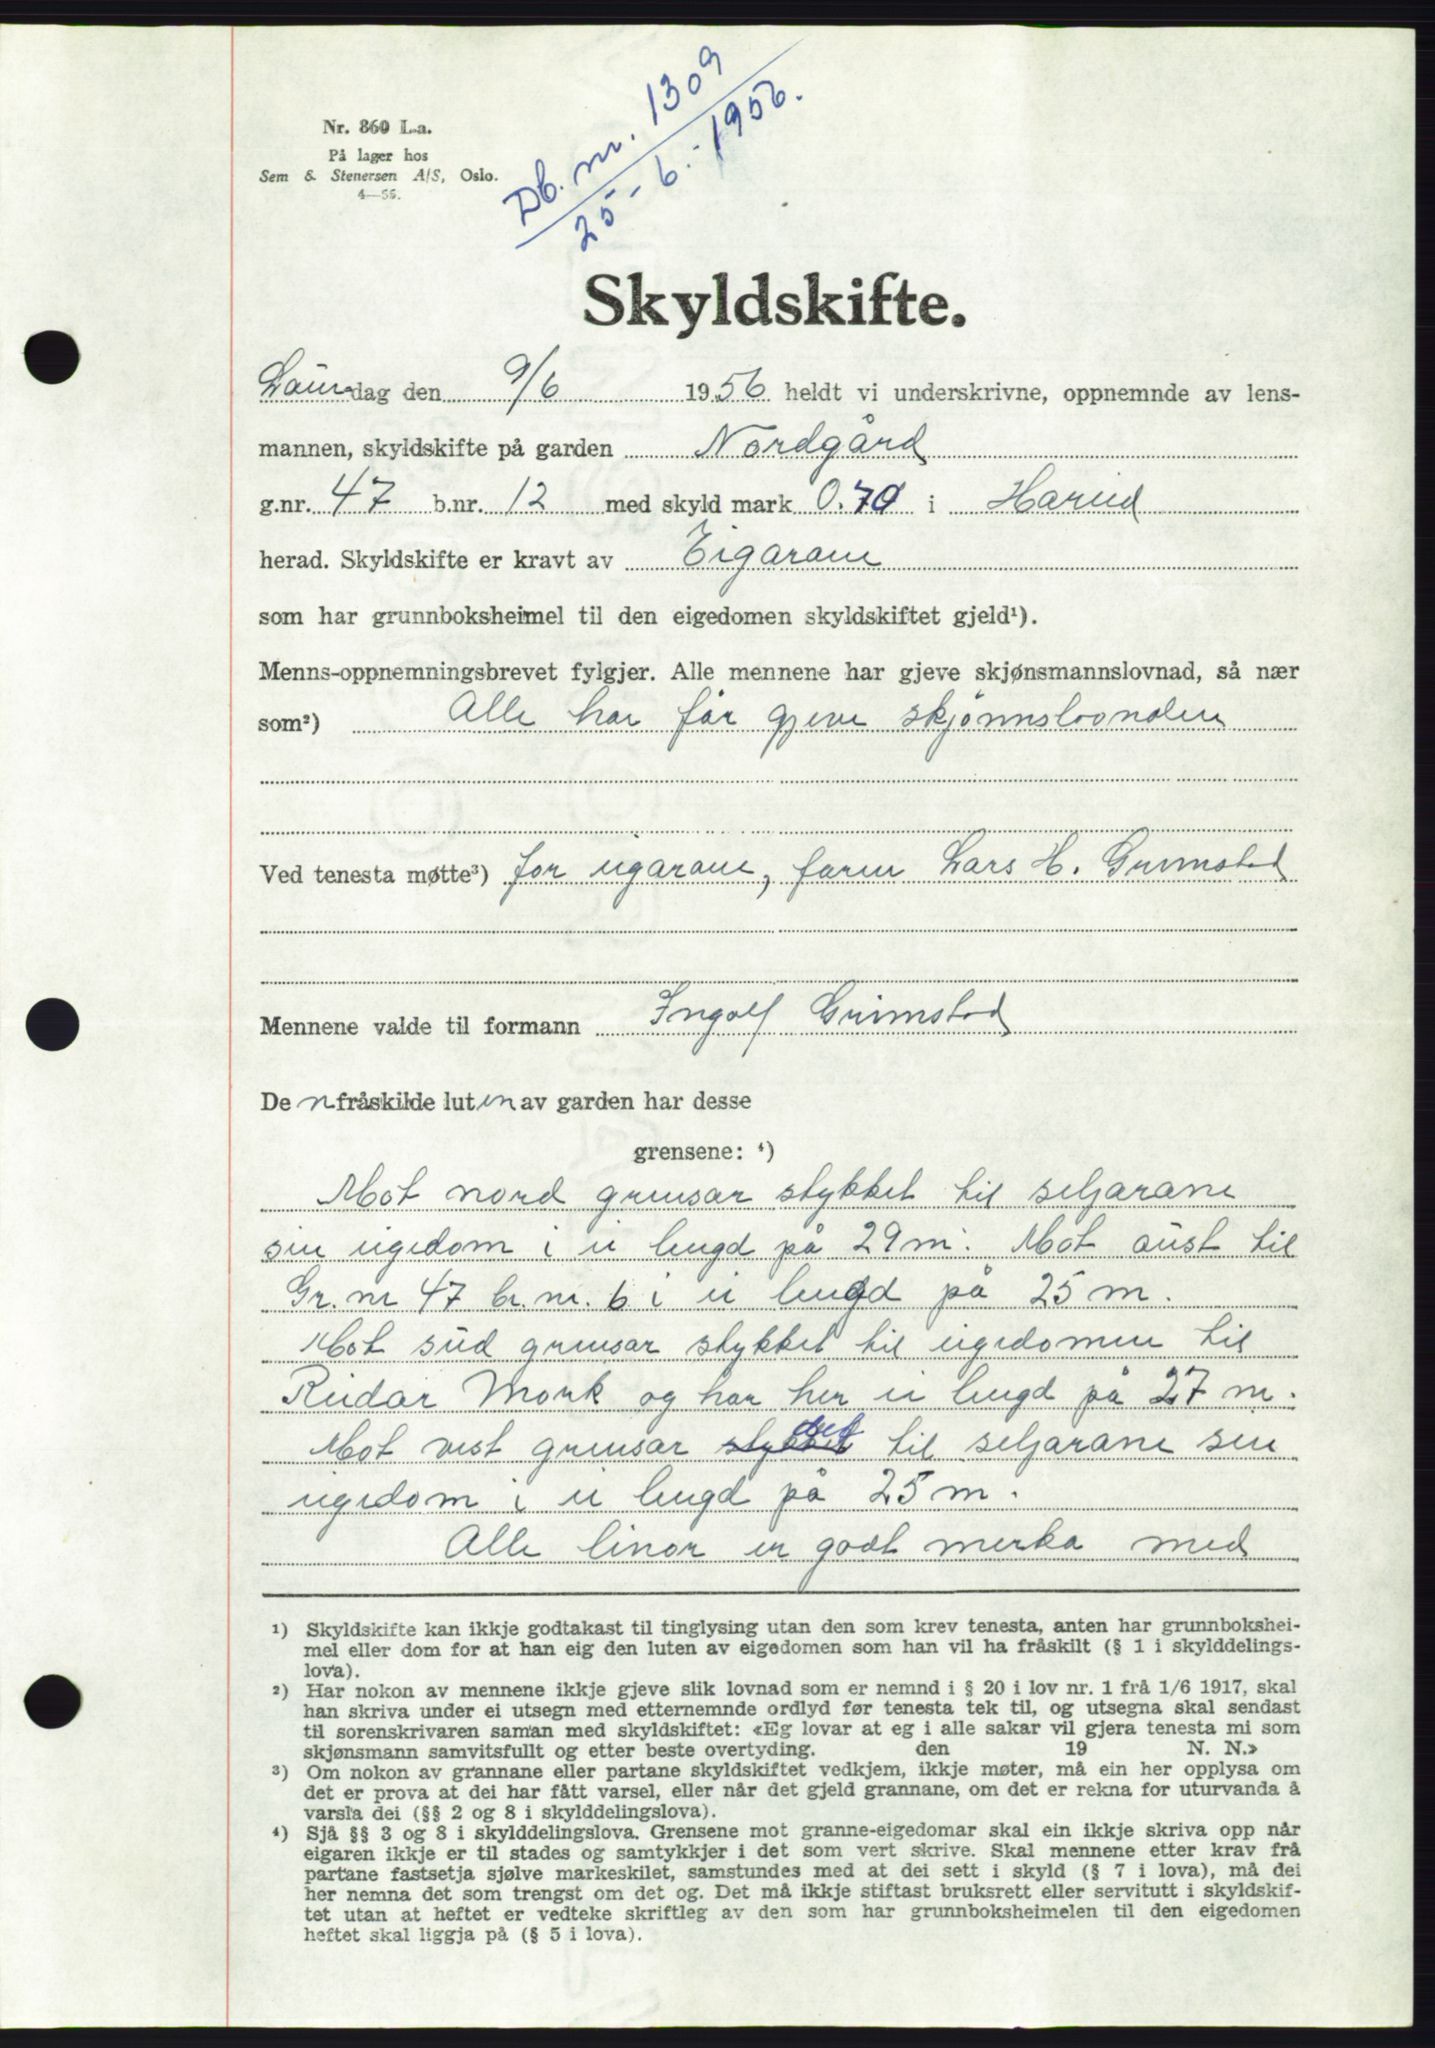 Db. nr. 1309
25-6.-1956.
Nr. 860 L.a.
På lager hos
Sem & Stenersen A/S, Oslo.
4—56.
Skyldskifte.
Laurdag den 9/6 1956 heldt vi underskrivne, oppnemnde av lens-
mannen, skyldskifte på garden Nordgård
g.nr. 47 b.nr. 12 med skyld mark 0.70 i Hareid
herad. Skyldskifte er kravt av Eigarane
som har grunnboksheimel til den eigedomen skyldskiftet gjeld¹).
Menns-oppnemningsbrevet fylgjer. Alle mennene har gjeve skjønsmannslovnad, så nær
som²) Alle har før gjeve skjønnslovnalen
Ved tenesta møtte³) for eigarane, faren Lars H. Grimstad
Mennene valde til formann Ingolf Grimstad
De n fråskilde luten av garden har desse
grensene: ⁴)
Mot nord grensar stykket til seljarane
sin eigedom i ei lengd på 29 m. Mot aust til
Gr.nr 47 br.nr. 6 i ei lengd på 25 m.
Mot sud grensar stykket til eigedomen til
Reidar Mork og har her ei lengd på 27 m.
Mot vest grensar stykket det til seljarane sin
eigedom i ei lengd på 25 m.
Alle linor er godt merka med
¹) Skyldskifte kan ikkje godtakast til tinglysing utan den som krev tenesta, anten har grunnbokshei-
mel eller dom for at han eig den luten av eigedomen som han vil ha fråskilt (§ 1 i skylddelings-
lova).
²) Har nokon av mennene ikkje gjeve slik lovnad som er nemnd i § 20 i lov nr. 1 frå 1/6 1917, skal
han skriva under ei utsegn med etternemnde ordlyd før tenesta tek til, og utsegna skal sendast
til sorenskrivaren saman med skyldskiftet: «Eg lovar at eg i alle sakar vil gjera tenesta mi som
skjønsmann samvitsfullt og etter beste overtyding. den 19 N. N.»
³) Om nokon av grannane eller partane skyldskiftet vedkjem, ikkje møter, må ein her opplysa om
det er prova at dei har fått varsel, eller når det gjeld grannane, om det er rekna for uturvanda å
varsla dei (§§ 2 og 8 i skylddelingslova).
⁴) Sjå §§ 3 og 8 i skylddelingslova. Grensene mot granne-eigedomar skal ein ikkje skriva opp når
eigaren ikkje er til stades og samtykkjer i det som vert skrive. Skal mennene etter krav frå
partane fastsetja sjølve markeskilet, samstundes med at dei sett i skyld (§ 7 i lova), må dei
her nemna det som trengst om det og. Det må ikkje stiftast bruksrett eller servitutt i skyldskif-
tet utan at heftet er vedteke skriftleg av den som har grunnboksheimelen til den eigedomen
heftet skal liggja på (§ 5 i lova).